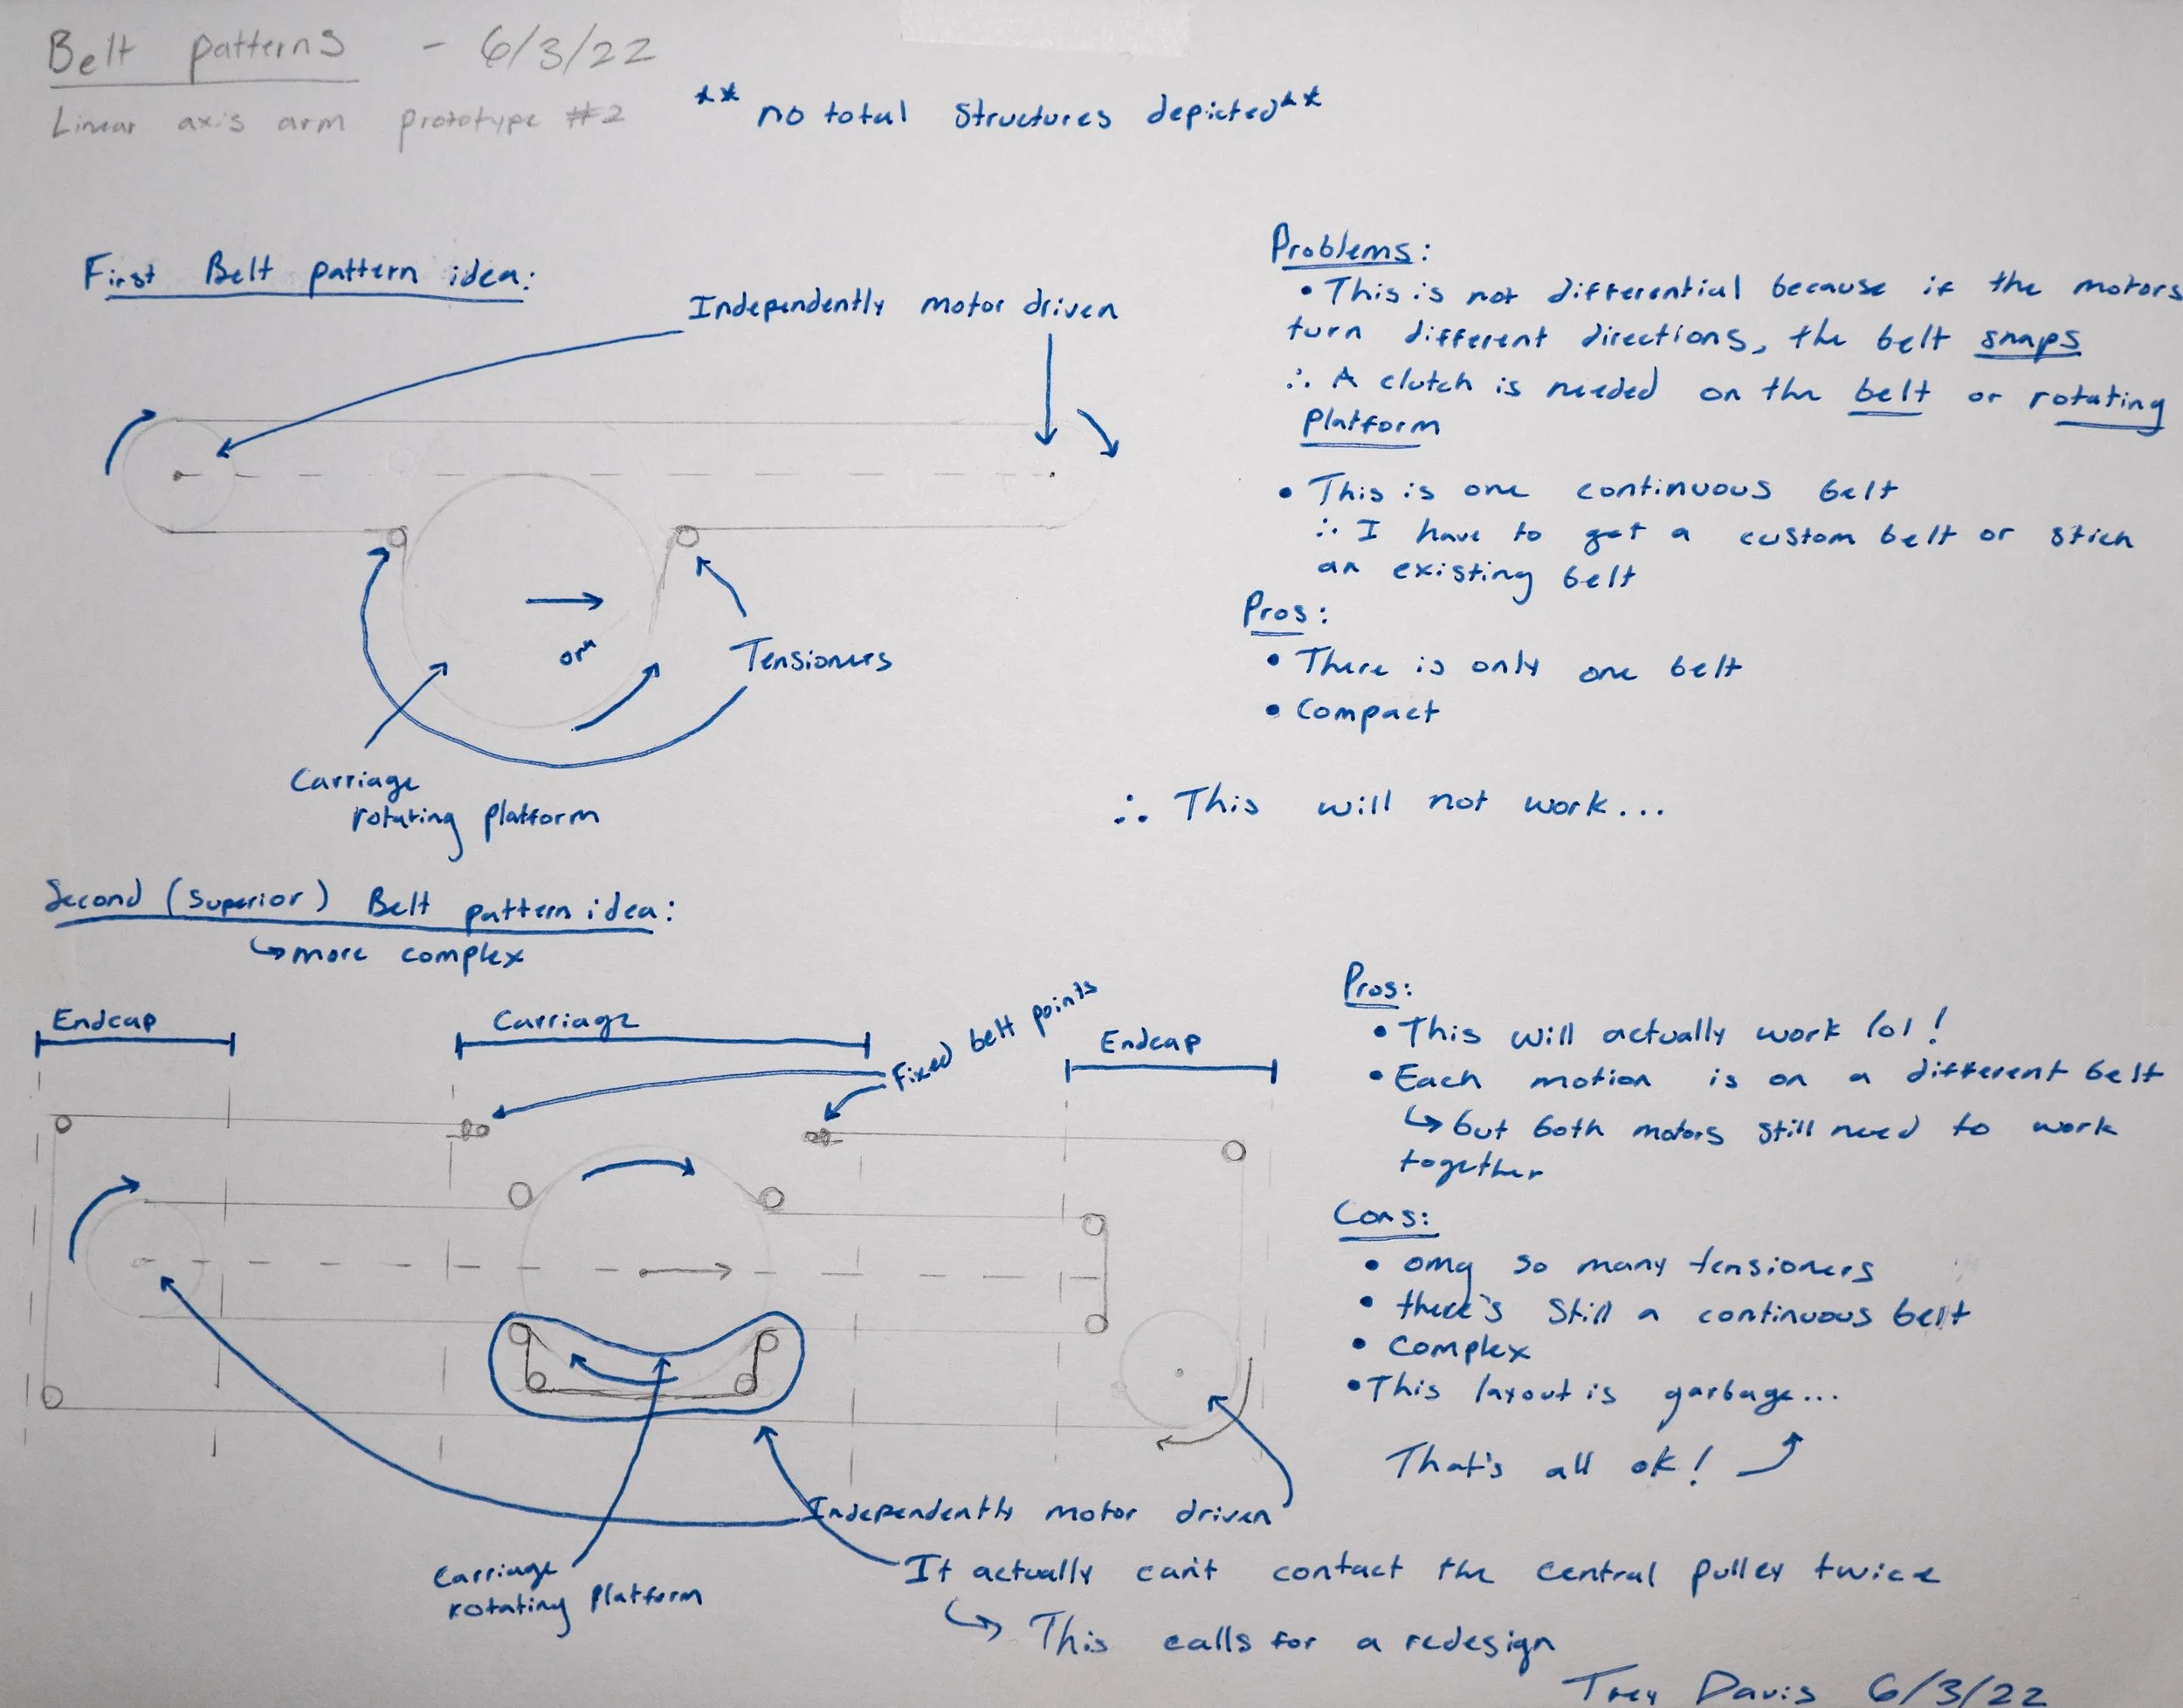 Belt patterns - 6/3/22
Linear axis arm prototype #2
** no total structures depicted**
First Belt pattern idea:
Independently motor driven
Tensioners
or
Carriage
rotating platform
Problems:
• This is not differential because if the motors
turn different directions, the belt snaps
∴ A clutch is needed on the belt or rotating
platform
• This is one continuous belt
∴ I have to get a custom belt or stich
an existing belt
Pros:
• There is only one belt
• Compact
∴ This will not work...
Second (superior) Belt pattern idea:
↳ more complex
Endcap
Carriage
Fixed belt points
Endcap
Independently motor driven
Carriage
rotating platform
It actually can't contact the central pulley twice
↳ This calls for a redesign
Pros:
• This will actually work lol!
• Each motion is on a different belt
↳ but both motors still need to work
together
Cons:
• omg so many tensioners
• there's still a continuous belt
• Complex
• This layout is garbage...
That's all ok!
Trey Davis 6/3/22